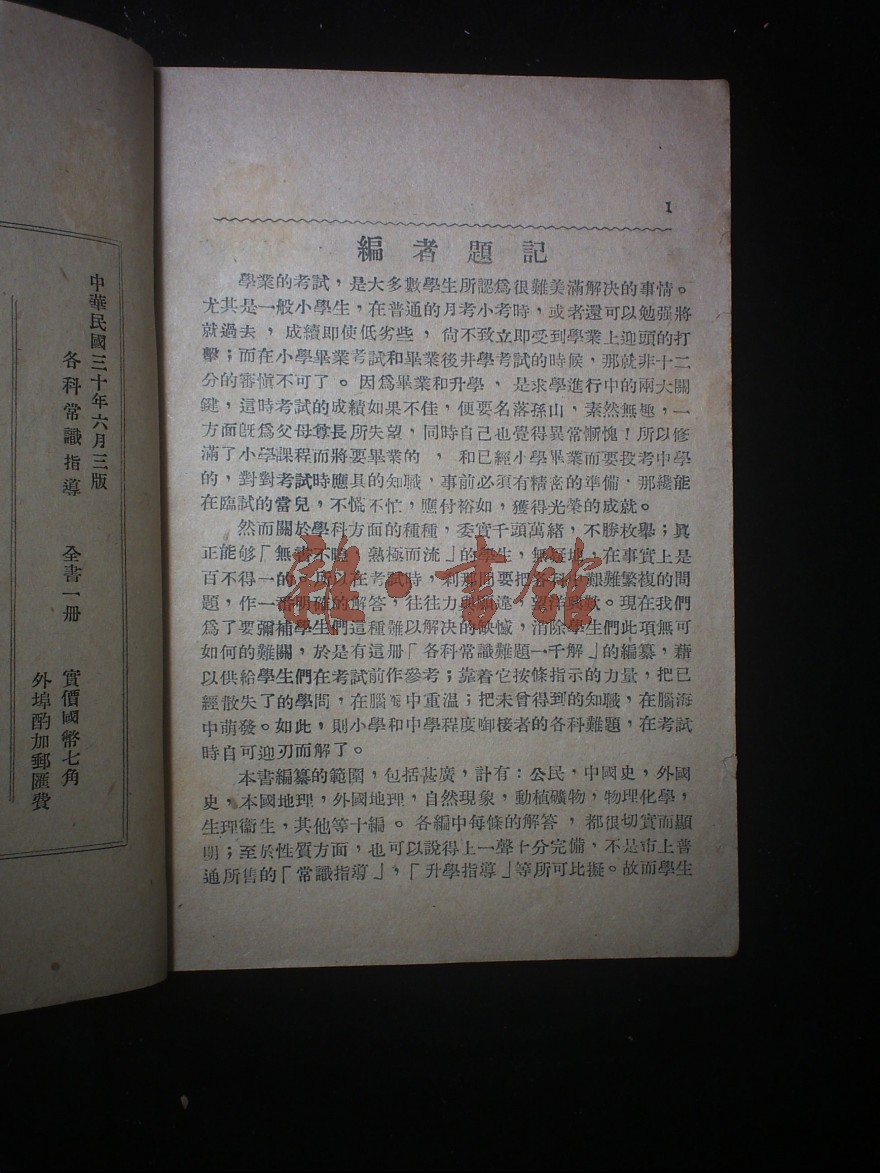 中華民國三十年六月三版
各科常識指導 全書一册 實價國幣七角
外埠酌加郵匯費
1
編者題記
學業的考試，是大多數學生所認爲很難美滿解决的事情。
尤其是一般小學生，在普通的月考小考時，或者還可以勉强將
就過去，成績即使低劣些，尙不致立即受到學業上迎頭的打
擊；而在小學畢業考試和畢業後升學考試的時候，那就非十二
分的審愼不可了。因爲畢業和升學，是求學進行中的兩大關
鍵，這時考試的成績如果不佳，便要名落孫山，索然無趣，一
方面旣爲父母尊長所失望，同時自己也覺得異常慚愧！所以修
滿了小學課程而將要畢業的，和已經小學畢業而要投考中學
的，對對考試時應具的知職，事前必須有精密的準備，那纔能
在臨試的當兒，不慌不忙，應付裕如，獲得光榮的成就。
然而關於學科方面的種種，委實千頭萬緒，不勝枚舉；眞
正能够「無書不曉，熟極而流」的學生，無疑地，在事實上是
百不得一的。所以在考試時，刹那間要把各科中艱難繁複的問
題，作一番明確的解答，往往力與願違，望洋興歎。現在我們
爲了要彌補學生們這種難以解决的缺憾，消除學生們此項無可
如何的難關，於是有這册「各科常識難題一千解」的編纂，藉
以供給學生們在考試前作參考；靠着它按條指示的力量，把已
經散失了的學問，在腦中重温；把未曾得到的知職，在腦海
中萌發。如此，則小學和中學程度啣接者的各科難題，在考試
時自可迎刃而解了。
本書編纂的範圍，包括甚廣，計有：公民，中國史，外國
史，本國地理，外國地理，自然現象，動植礦物，物理化學，
生理衞生，其他等十編。各編中每條的解答，都很切實而顯
明；至於性質方面，也可以說得上一聲十分完備，不是市上普
通所售的「常識指導」，「升學指導」等所可比擬。故而學生
雜·書館